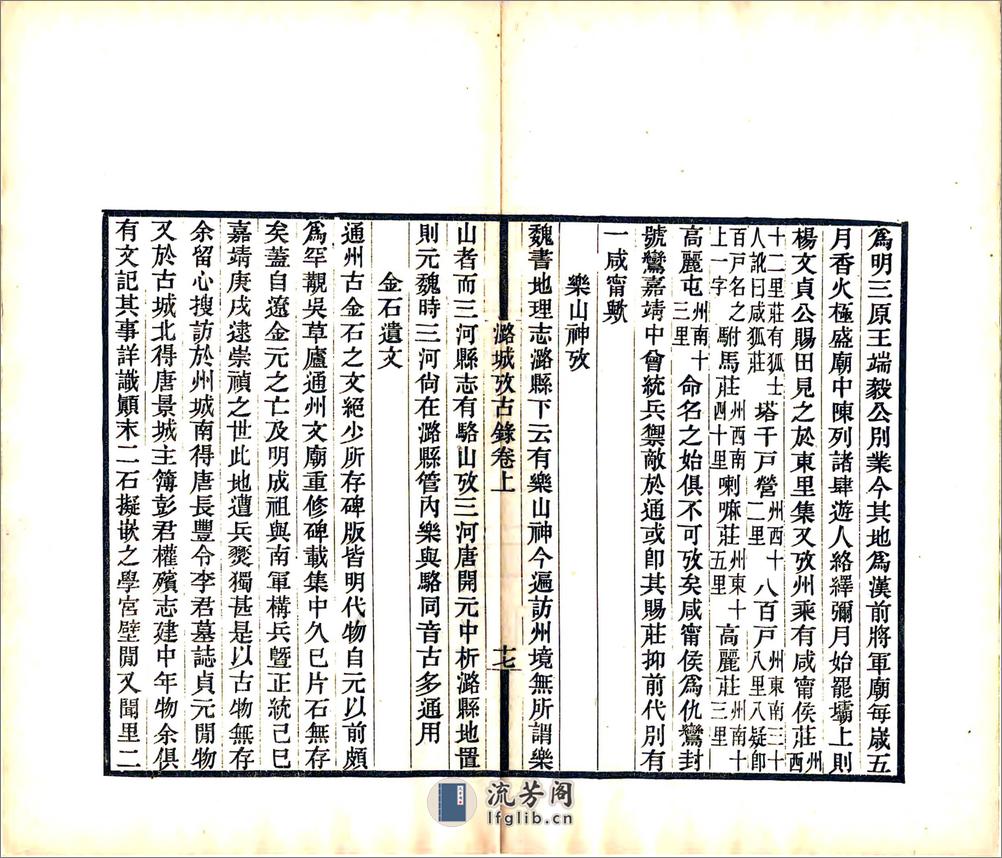 爲明三原王端毅公別業今其地爲漢前將軍廟每歲五
月香火極盛廟中陳列諸肆遊人絡繹彌月始罷壩上則
楊文貞公賜田見之於東里集又攷州乘有咸甯侯莊州西
十二里莊有狐士人訛曰咸狐莊塔千戶營州西十二里八百戶州東南三十八里八疑卽
百戶名之附上一字駙馬莊州西南四十里喇嘛莊州東十五里高麗莊州南十三里
高麗屯州南十三里命名之始俱不可攷矣咸甯侯爲仇鸞封
號鸞嘉靖中曾統兵禦敵於通或卽其賜莊抑前代別有
一咸甯歟
樂山神攷
魏書地理志潞縣下云有樂山神今遍訪州境無所謂樂
潞城攷古錄卷上
十七
山者而三河縣志有駱山攷三河唐開元中析潞縣地置
則元魏時三河尙在潞縣管內樂與駱同音古多通用
金石遺文
通州古金石之文絕少所存碑版皆明代物自元以前頗
爲罕觀吳草廬通州文廟重修碑載集中久已片石無存
矣蓋自遼金元之亡及明成祖與南軍構兵暨正統己巳
嘉靖庚戌遠崇禎之世此地遭兵燹獨甚是以古物無存
余留心搜訪於州城南得唐長豐令李君墓誌貞元閒物
又於古城北得唐景城主簿彭君權殯志建中年物余俱
有文記其事詳識顚末二石擬嵌之學宮壁閒又聞里二
流芳阁
lfglib.cn